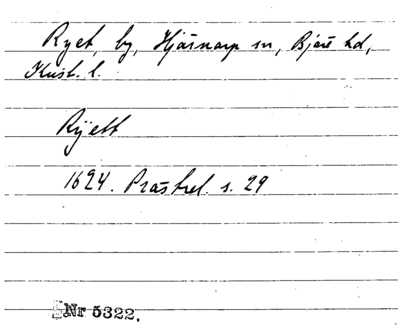 Ryet, by, Hjärnarp sn, Bjäre hd,
Krist. l.
Rÿett
1624. Prästrel. s. 29
Nr 5322.